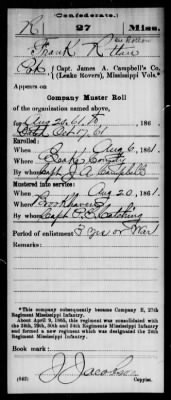 (Confederate.)
R 27 Miss.
Frank
Pvt., Capt. James A. Campbell's Co.
(Leake Rovers), Mississippi Vols.*
Appears on
Company Muster Roll
of the organization named above,
for Aug 24, 61 to , 186 .
Oct 7, 61
Enlisted:
When Aug 6, 186 1.
Where Leake County
By whom Capt J. A. Campbell
Mustered into service:
When Aug 20, 186 1.
Where Brookhaven
By whom Capt
Period of enlistment 3 yrs or War
Remarks:
*This company subsequently became Company E, 27th
Regiment Mississippi Infantry.
About April 9, 1865, this regiment was consolidated with
the 24th, 29th, 30th and 34th Regiments Mississippi Infantry
and formed a new regiment which was designated the 24th
Regiment Mississippi Infantry.
Book mark:
J. Jacobson
(642) Copyist.